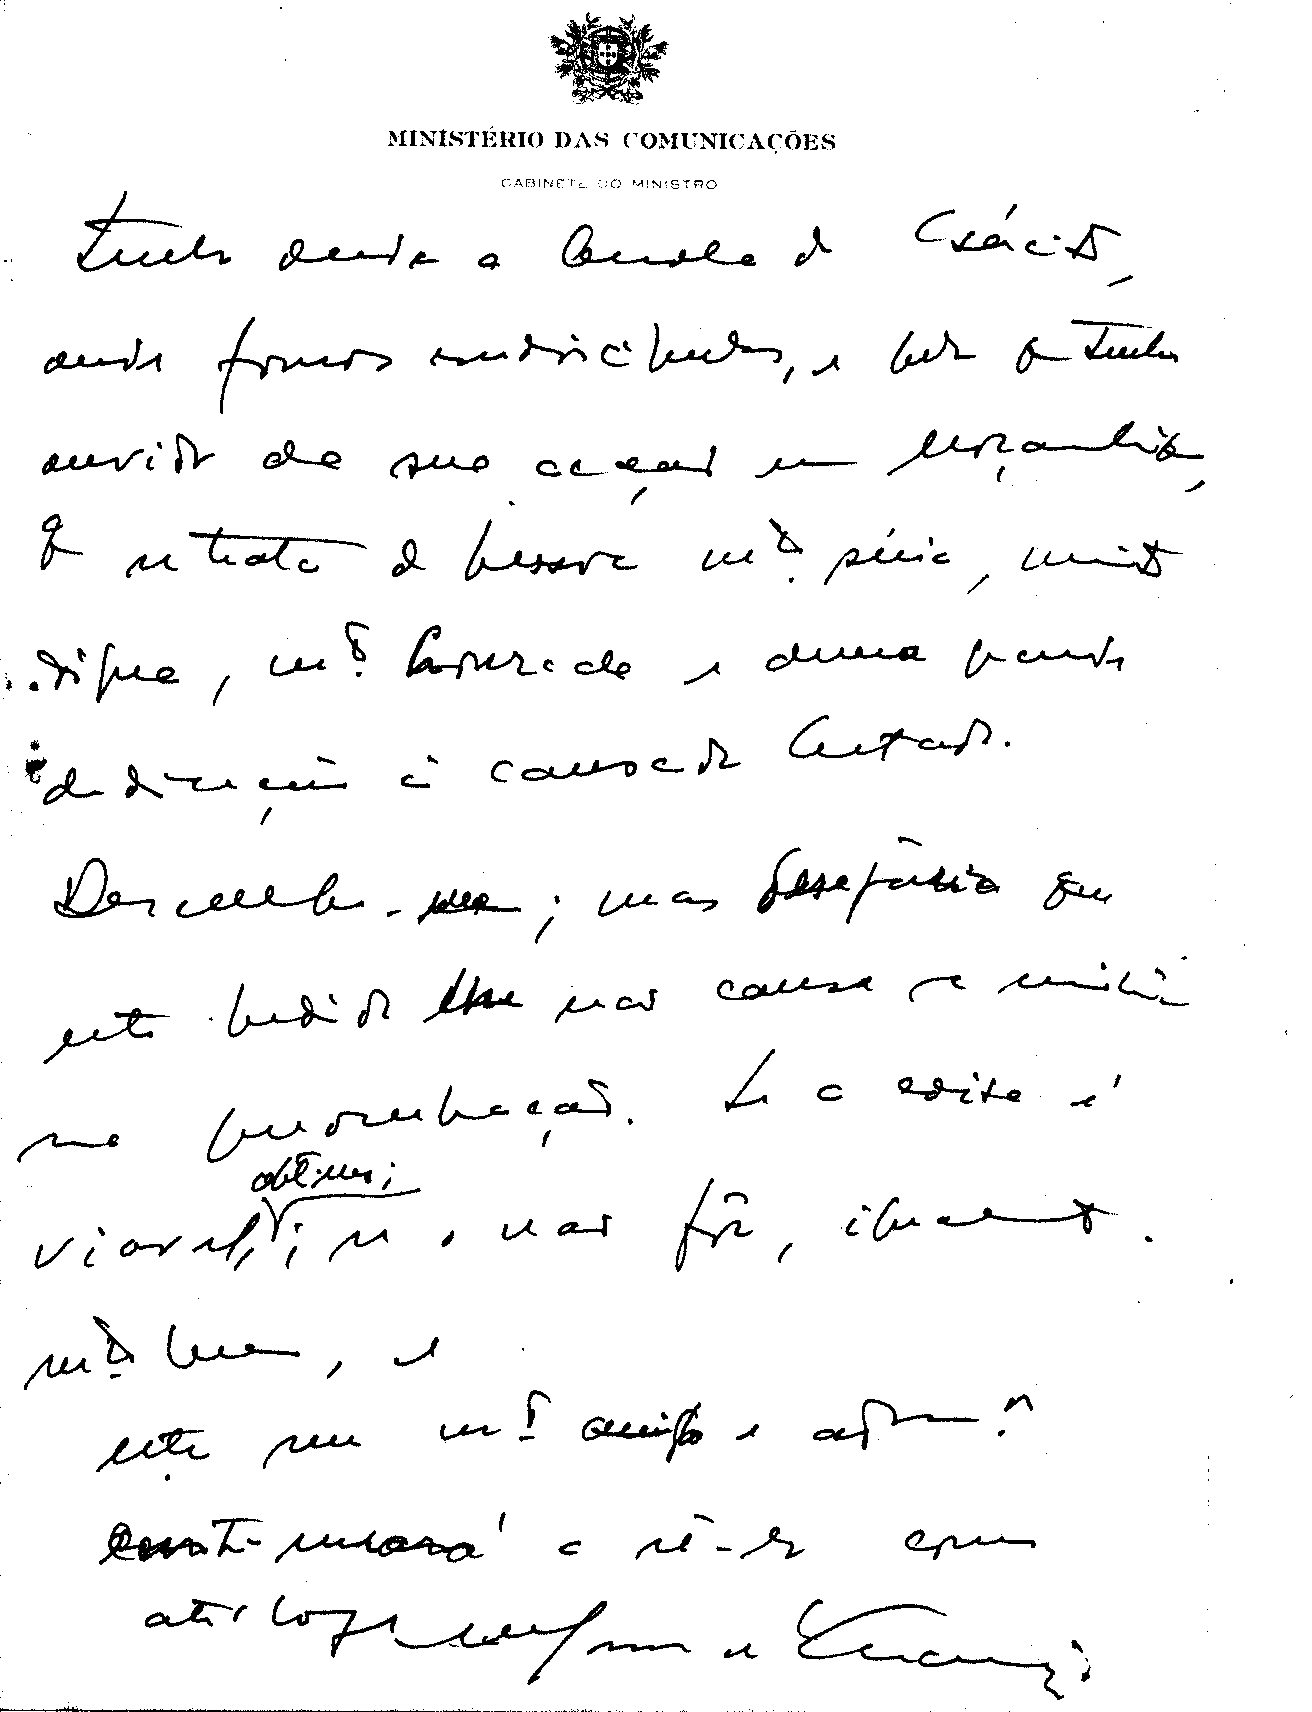 MINISTÉRIO DAS COMUNICAÇÕES
GABINETE DO MINISTRO
tenho desde a Escola do Exército,
onde fomos condiscípulos, e pelo q tenho
ouvido da sua acção em Moçambique,
q se trata de pessoa mtº séria, muito
digna, mtº honrada e duma grande
dedicação à causa do Estado.
Desculpe-me; mas desejaria que
este pedido lhe não causasse a mínima
preocupação. Se a coisa é
viavel, óptimo; se o não fôr, igualmente.
mtº bem, e
este seu mtº amigo e admor
continuará a sê-lo como
até hoje